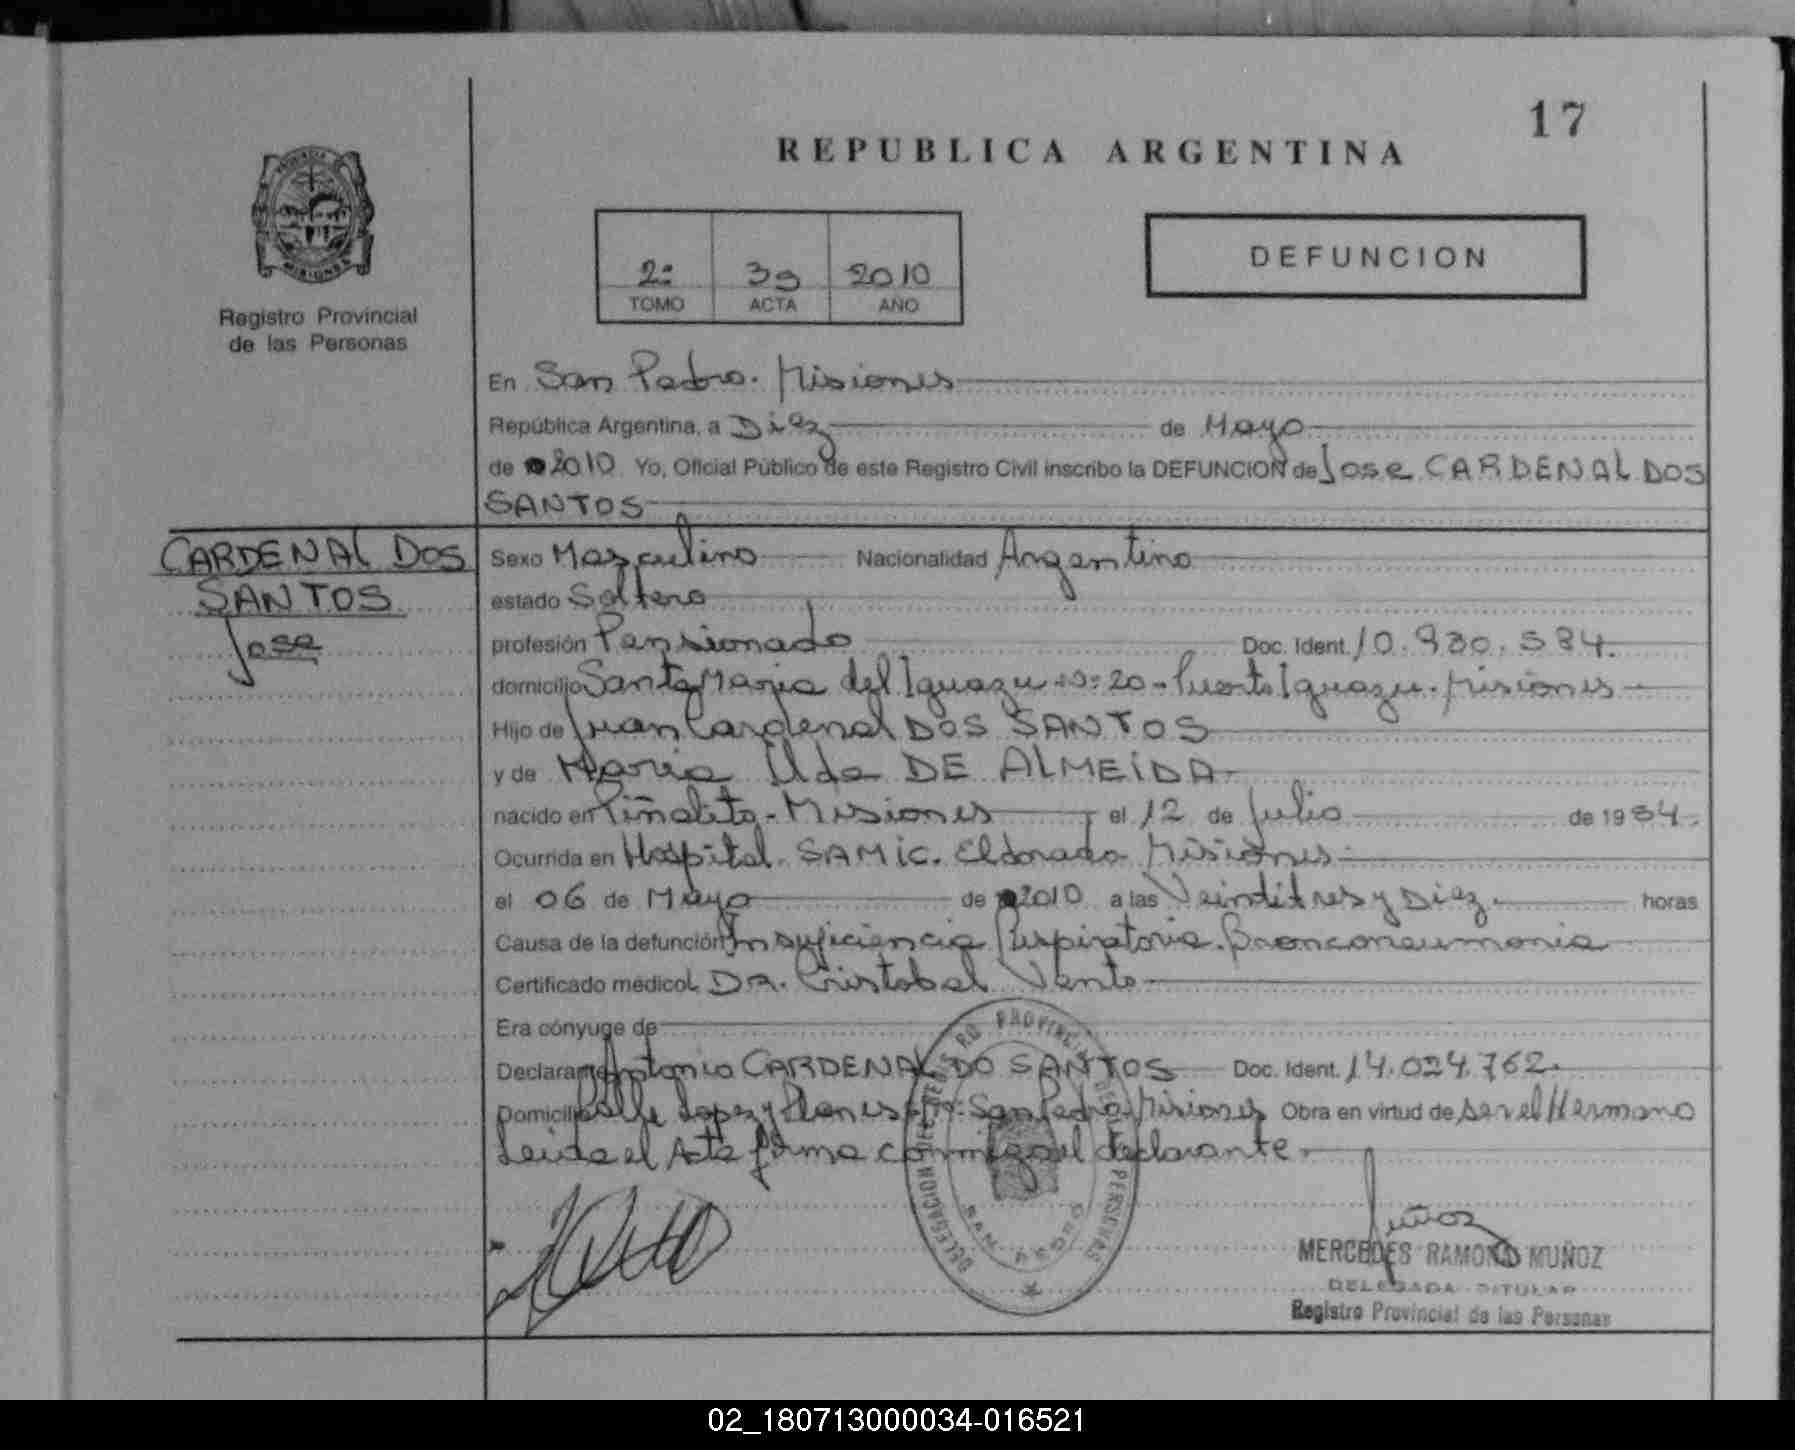 17
REPUBLICA ARGENTINA
PROVINCIA DE
MISIONES
Registro Provincial
de las Personas
2º 39 2010
TOMO ACTA AÑO
DEFUNCION
En San Pedro. Misiones
República Argentina, a Diez de Mayo
de 2010 Yo, Oficial Público de este Registro Civil inscribo la DEFUNCION de Jose CARDENAL DOS
SANTOS
CARDENAL DOS
SANTOS
Jose
Sexo Masculino Nacionalidad Argentino
estado Soltero
profesión Pensionado Doc. Ident. 10.930.584.
domicilio Santa Maria del Iguazu nº 20 - Puerto Iguazu. Misiones
Hijo de Juan Cardenal DOS SANTOS
y de Maria Ilda DE ALMEIDA
nacido en Piñalito - Misiones el 12 de Julio de 1954.
Ocurrida en Hospital SAMIC. Eldorado Misiones
el 06 de Mayo de 2010 a las Veintitres y Diez horas
Causa de la defunción Insuficiencia Respiratoria. Bronconeumonia
Certificado médico DR. Cristobal Vento
Era cónyuge de
Declarante Antonio CARDENAL DO SANTOS Doc. Ident. 14.024.762.
Domicilio Calle Lopez y Planes San Pedro Misiones Obra en virtud de ser el Hermano
Leida el Acta firma conmigo el declarante.
DELEGACION DEL REGISTRO PROVINCIAL DE LAS PERSONAS
SAN PEDRO
Muñoz
MERCEDES RAMONA MUÑOZ
DELEGADA TITULAR
Registro Provincial de las Personas
02_180713000034-016521